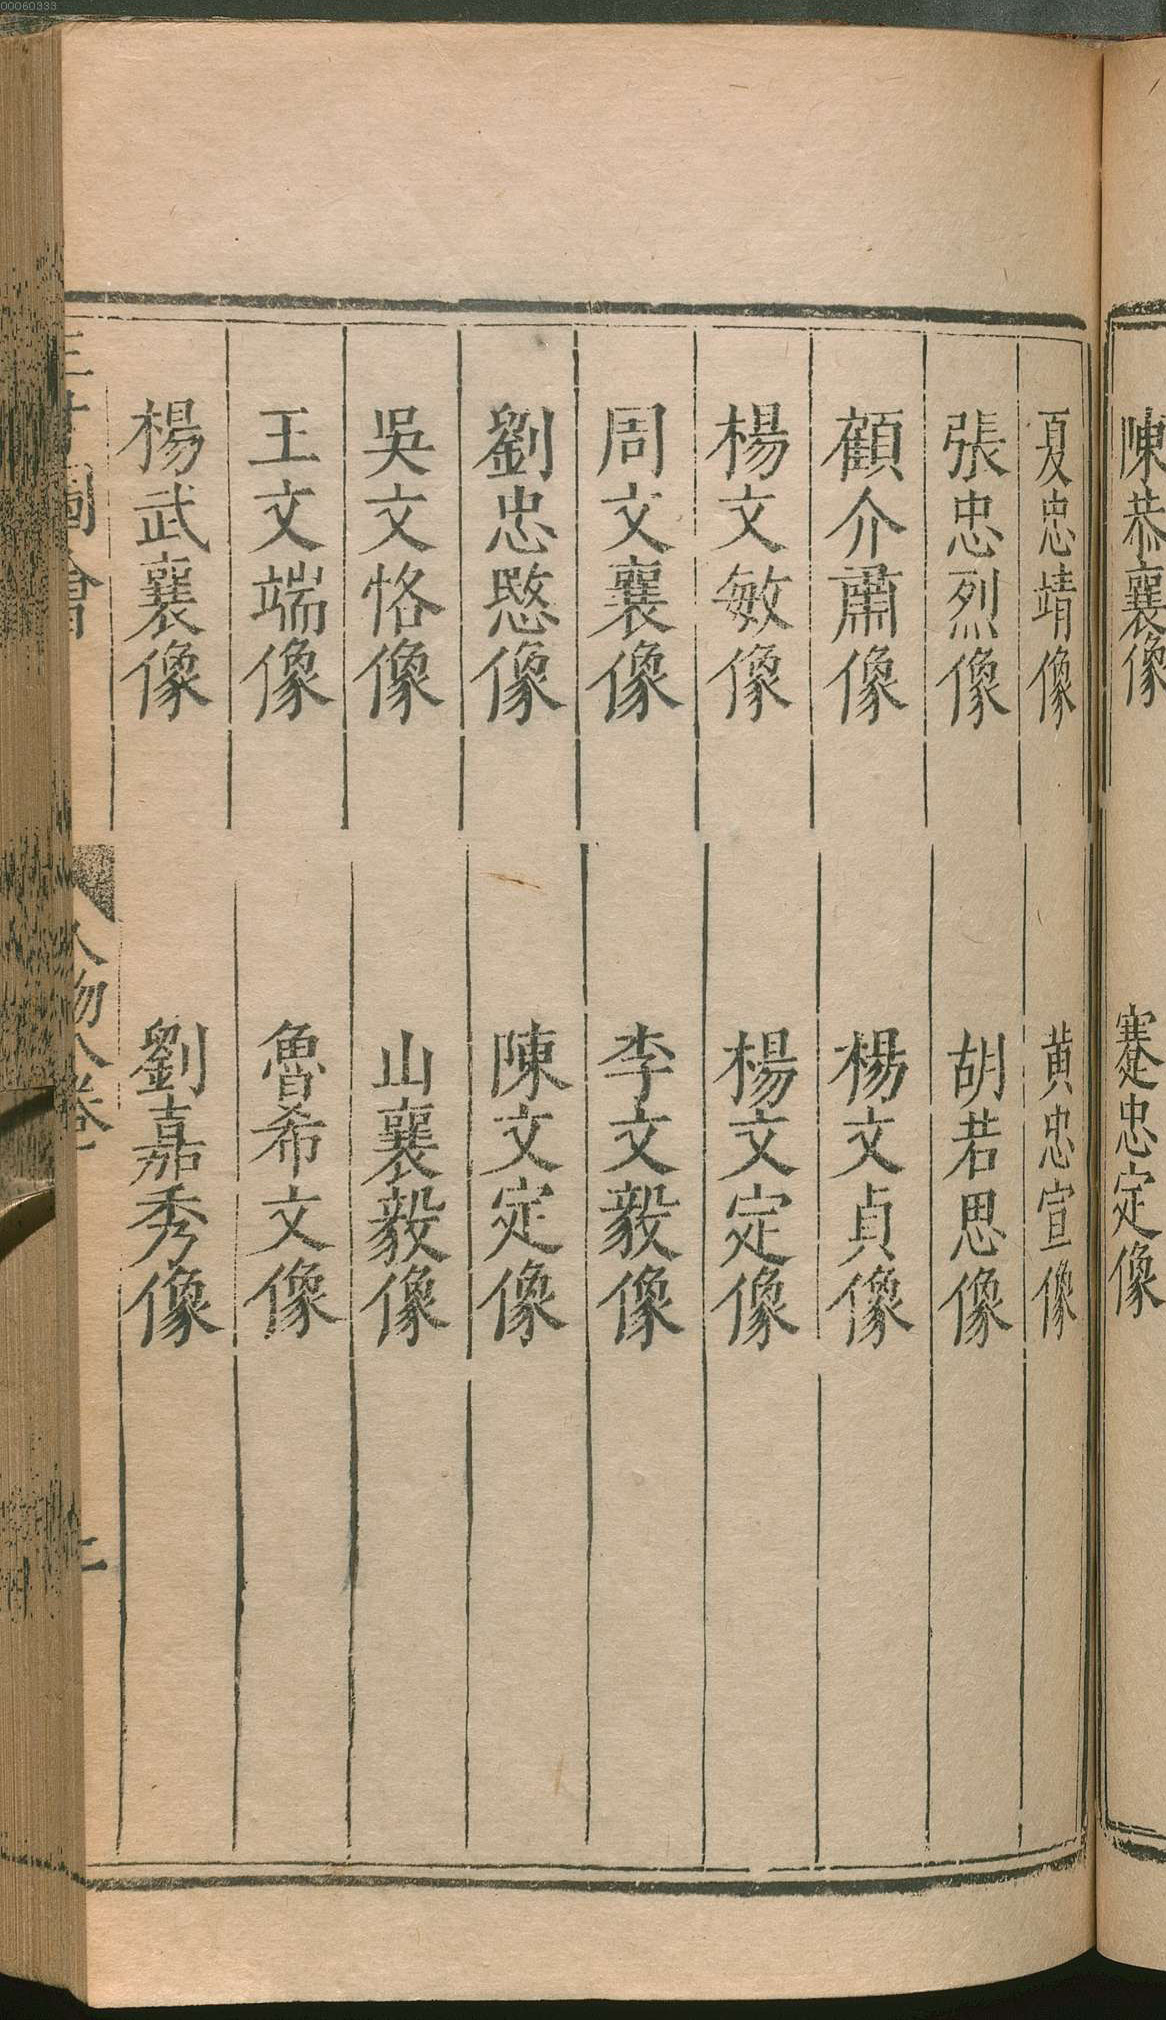 00060333
陳恭襄像
蹇忠定像
夏忠靖像
黄忠宣像
張忠烈像
胡若思像
顧介肅像
楊文貞像
楊文敏像
楊文定像
周文襄像
李文毅像
劉忠愍像
陳文定像
吳文恪像
山襄毅像
王文端像
魯希文像
楊武襄像
劉嘉秀像
三才圖會
人物八卷
二